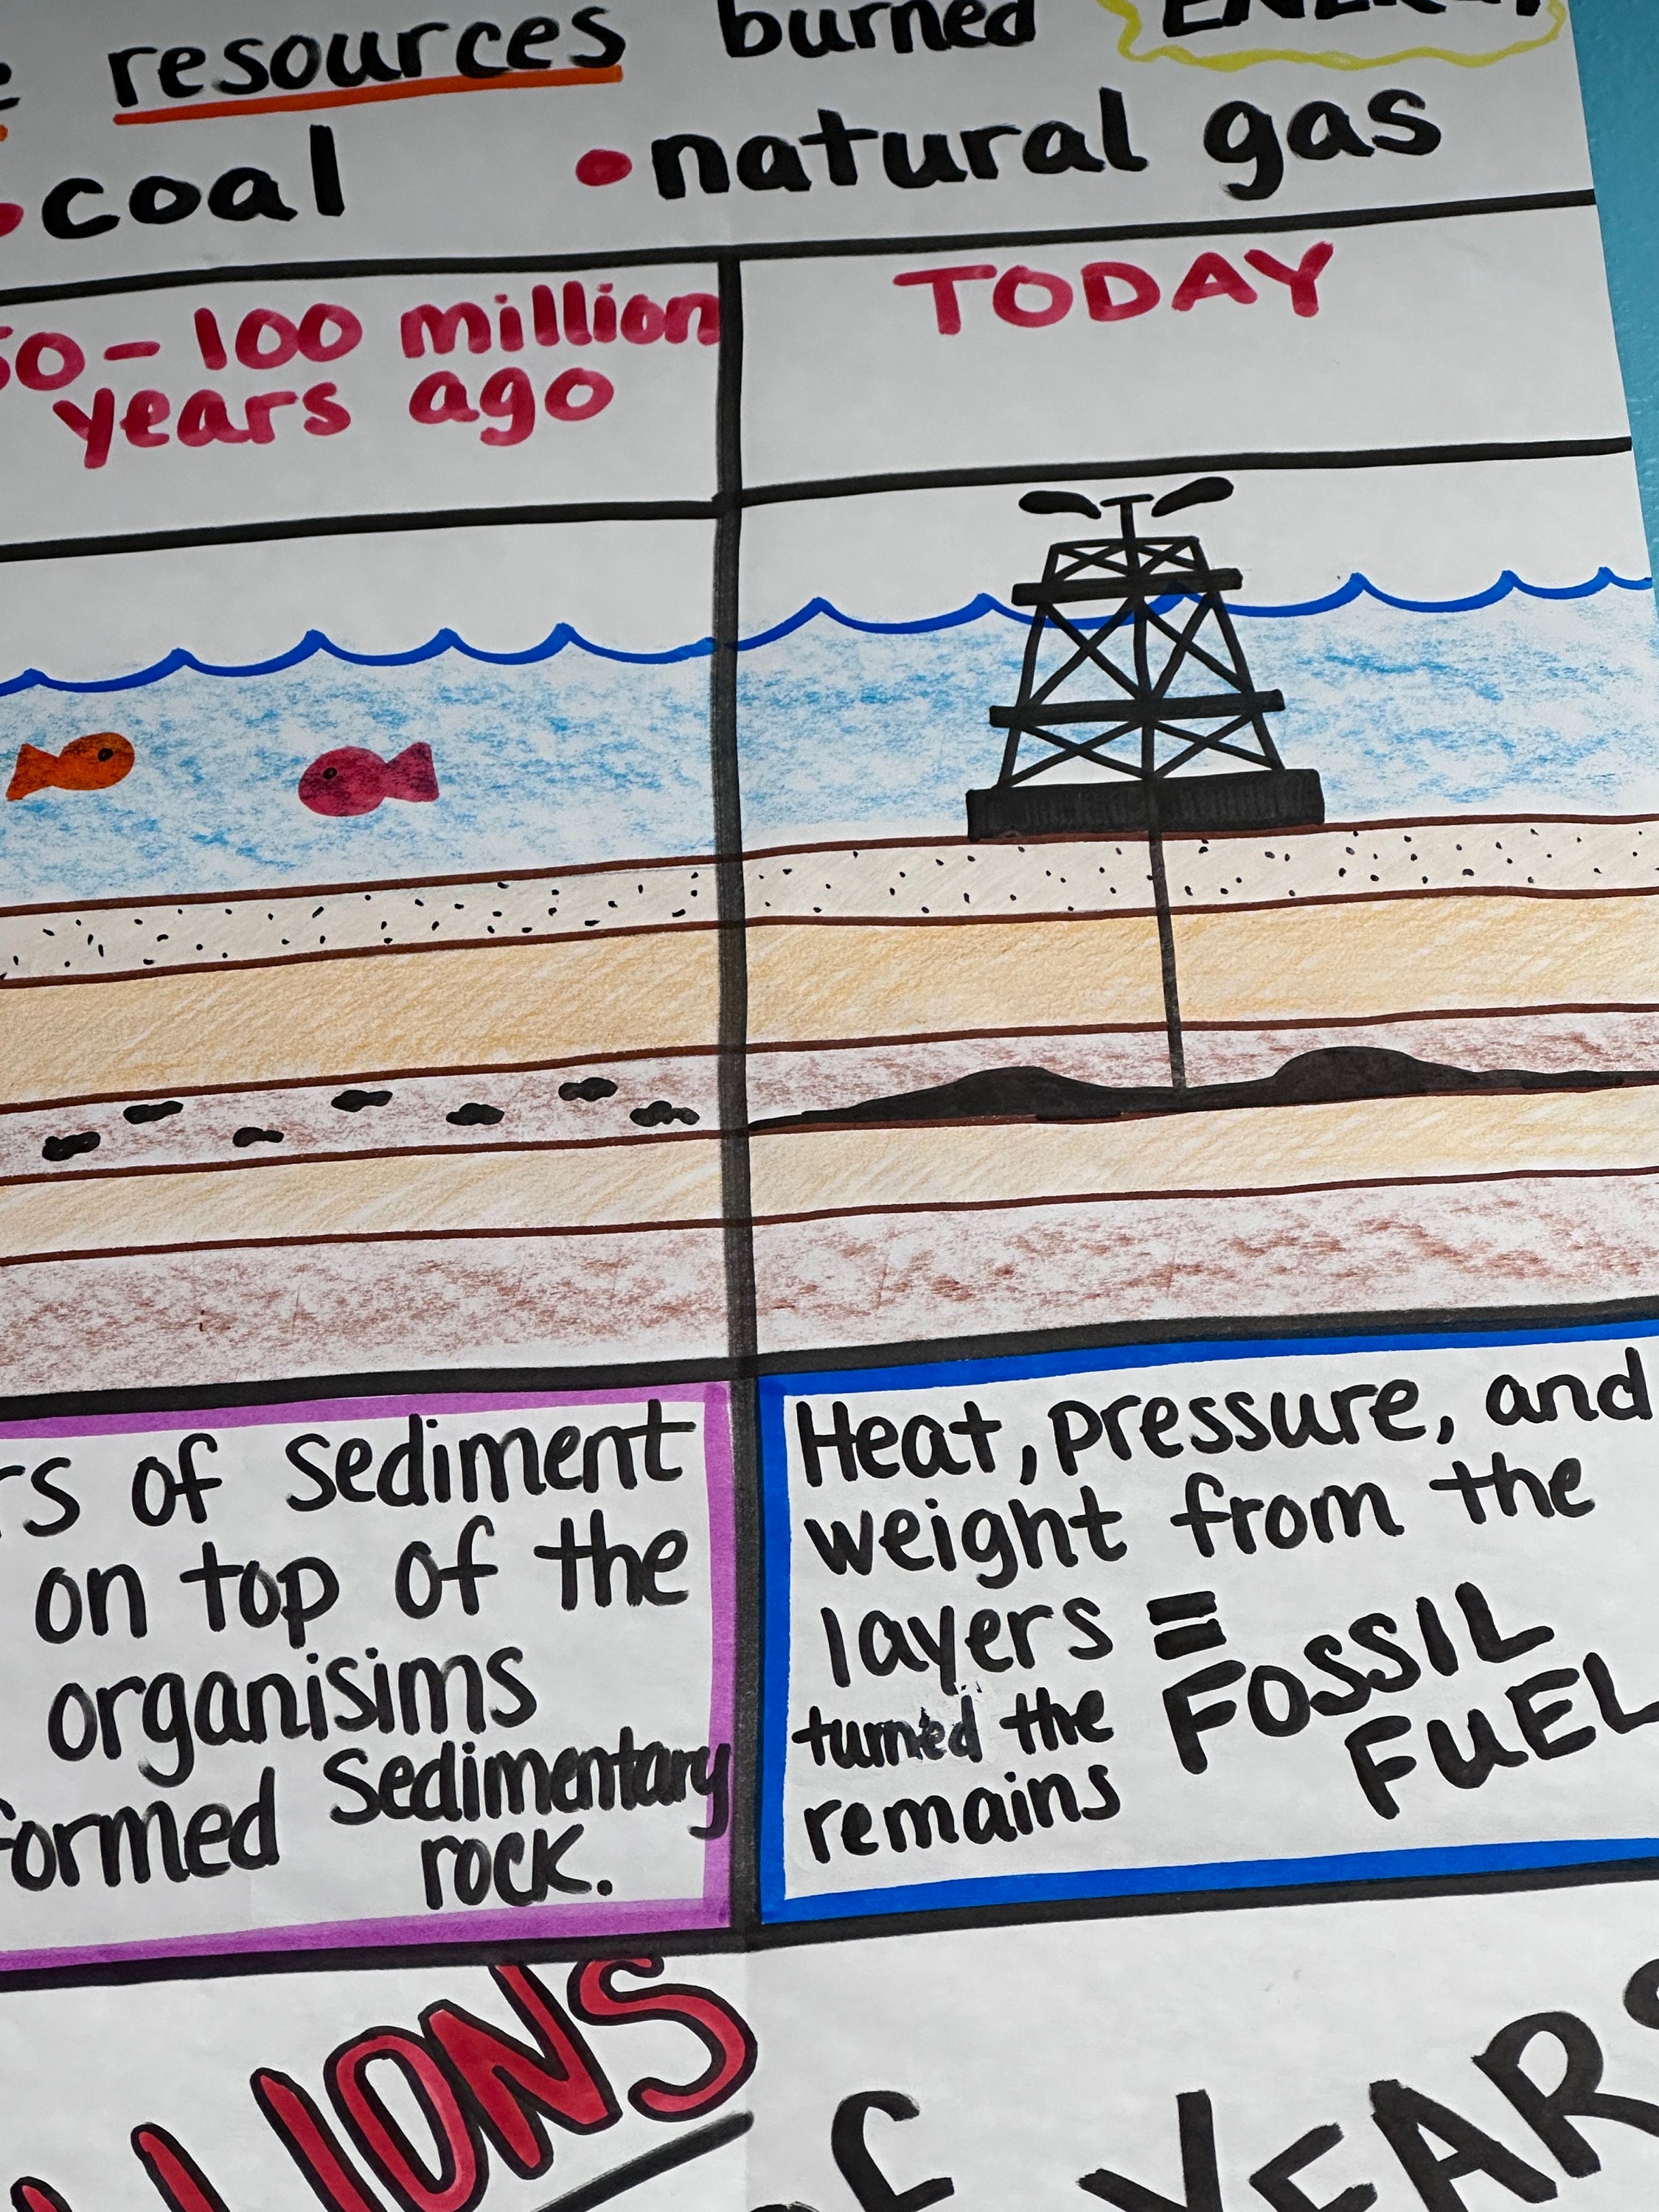 resources burned ENERGY
coal
natural gas
50-100 million
years ago
TODAY
rs of sediment
on top of the
organisims
formed Sedimentary
rock.
Heat, pressure, and
weight from the
layers =
turned the
remains
FOSSIL
FUEL
LLIONS
OF YEARS